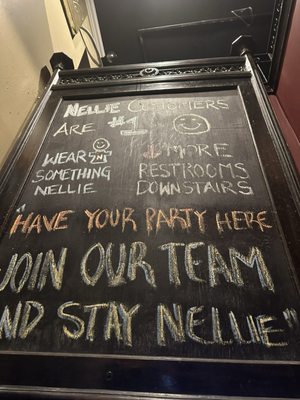 NELLIE CUSTOMERS
ARE #1
WEAR
SOMETHING
NELLIE
↓ MORE
RESTROOMS
DOWNSTAIRS
HAVE YOUR PARTY HERE
JOIN OUR TEAM
AND STAY NELLIE"